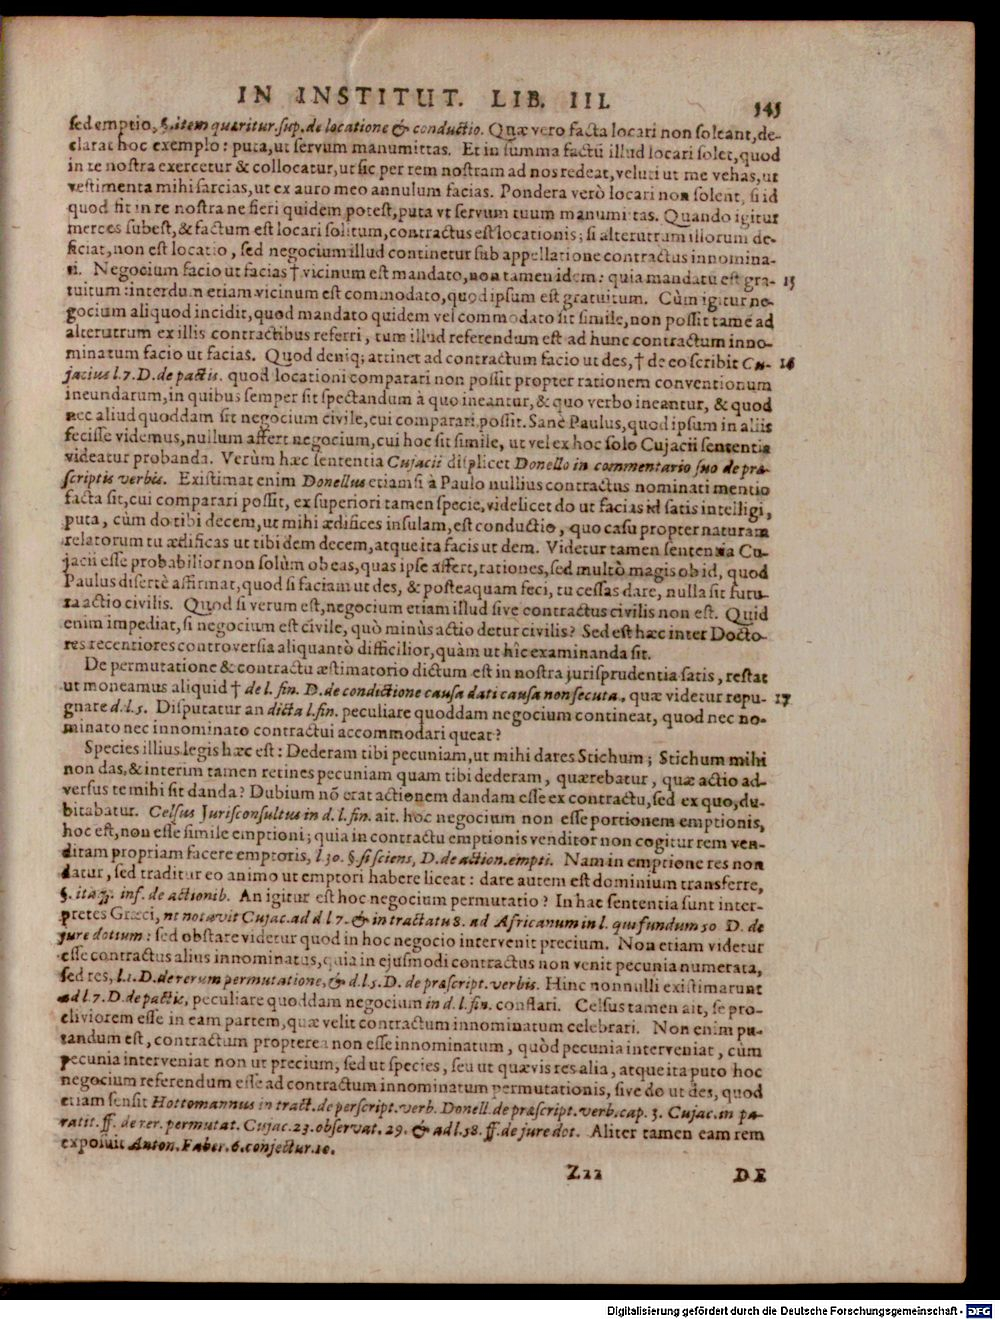 IN INSTITUT. LIB. III. 545
sed emptio, §. item quæritur. sup. de locatione & conductio. Quæ vero facta locari non soleant, de-
clarat hoc exemplo: puta, ut servum manumittas. Et in summa factū illud locari solet, quod
in re nostra exercetur & collocatur, ut sic per rem nostram ad nos redeat, veluti ut me vehas, ut
vestimenta mihi sarcias, ut ex auro meo annulum facias. Pondera verò locari non solent, si id
quod fit in re nostra ne fieri quidem potest, puta vt servum tuum manumittas. Quando igitur
merces subest, & factum est locari solitum, contractus est locationis; si alterutrum illorum de-
ficiat, non est locatio, sed negocium illud continetur sub appellatione contractus innomina-
ti. Negocium facio ut facias † vicinum est mandato, non tamen idem: quia mandatū est gra- 15
tuitum: interdum etiam vicinum est commodato, quod ipsum est gratuitum. Cùm igitur ne-
gocium aliquod incidit, quod mandato quidem vel commodato sit simile, non possit tamē ad
alterutrum ex illis contractibus referri, tum illud referendum est ad hunc contractum inno-
minatum facio ut facias. Quod deniq; attinet ad contractum facio ut des, † de eo scribit Cu- 16
jacius l. 7. D. de pactis. quod locationi comparari non possit propter rationem conventionum
ineundarum, in quibus semper sit spectandum à quo ineantur, & quo verbo ineantur, & quod
nec aliud quoddam sit negocium civile, cui comparari possit. Sanè Paulus, quod ipsum in aliis
fecisse videmus, nullum affert negocium, cui hoc sit simile, ut vel ex hoc solo Cujacii sententia
videatur probanda. Verùm hæc sententia Cujacii displicet Donello in commentario suo de præ-
scriptis verbis. Existimat enim Donellus etiamsi à Paulo nullius contractus nominati mentio
facta sit, cui comparari possit, ex superiori tamen specie, videlicet do ut facias id satis intelligi,
puta, cùm do tibi decem, ut mihi ædifices insulam, est conductio, quo casu propter naturam
relatorum tu ædificas ut tibi dem decem, atque ita facis ut dem. Videtur tamen sententia Cu-
jacii esse probabilior non solùm ob eas, quas ipse affert, rationes, sed multò magis ob id, quod
Paulus disertè affirmat, quod si faciam ut des, & posteaquam feci, tu cessas dare, nulla sit futu-
ra actio civilis. Quod si verum est, negocium etiam illud sive contractus civilis non est. Quid
enim impediat, si negocium est civile, quò minùs actio detur civilis? Sed est hæc inter Docto-
res recentiores controversia aliquantò difficilior, quàm ut hîc examinanda sit.
De permutatione & contractu æstimatorio dictum est in nostra jurisprudentia satis, restat
ut moneamus aliquid † de l. fin. D. de condictione causa dati causa non secuta., quæ videtur repu- 17
gnare d. l. 5. Disputatur an dicta l. fin. peculiare quoddam negocium contineat, quod nec no-
minato nec innominato contractui accommodari queat?
Species illius legis hæc est: Dederam tibi pecuniam, ut mihi dares Stichum; Stichum mihi
non das, & interim tamen retines pecuniam quam tibi dederam, quærebatur, quæ actio ad-
versus te mihi sit danda? Dubium nō erat actionem dandam esse ex contractu, sed ex quo, du-
bitabatur. Celsus Jurisconsultus in d. l. fin. ait. hoc negocium non esse portionem emptionis,
hoc est, non esse simile emptioni; quia in contractu emptionis venditor non cogitur rem ven-
ditam propriam facere emptoris, l. 30. §. si sciens, D. de action. empti. Nam in emptione res non
datur, sed traditur eo animo ut emptori habere liceat: dare autem est dominium transferre,
§. itaq; inf. de actionib. An igitur est hoc negocium permutatio? In hac sententia sunt inter-
pretes Græci, ut notavit Cujac. ad d l 7. & in tractatu 8. ad Africanum in l. qui fundum 50 D. de
jure dotium: sed obstare videtur quod in hoc negocio intervenit precium. Non etiam videtur
esse contractus alius innominatus, quia in ejusmodi contractus non venit pecunia numerata,
sed res, l. 1. D. de rerum permutatione, & d. l. 5. D. de præscript. verbis. Hinc nonnulli existimarunt
ad l 7. D. de pactis, peculiare quoddam negocium in d. l. fin. conflari. Celsus tamen ait, se pro-
cliviorem esse in eam partem, quæ velit contractum innominatum celebrari. Non enim pu-
tandum est, contractum propterea non esse innominatum, quòd pecunia interveniat, cùm
pecunia interveniat non ut precium, sed ut species, seu ut quævis res alia, atque ita puto hoc
negocium referendum esse ad contractum innominatum permutationis, sive do ut des, quod
etiam sensit Hottomannus in tract. de perscript. verb. Donell. de præscript. verb. cap. 3. Cujac. in pa-
ratit. ff. de rer. permutat. Cujac. 23. observat. 29. & ad l. 58. ff. de jure dot. Aliter tamen eam rem
exposuit Anton. Faber. 6. conjectur. 10.
Zzz DE
Digitalisierung gefördert durch die Deutsche Forschungsgemeinschaft - DFG